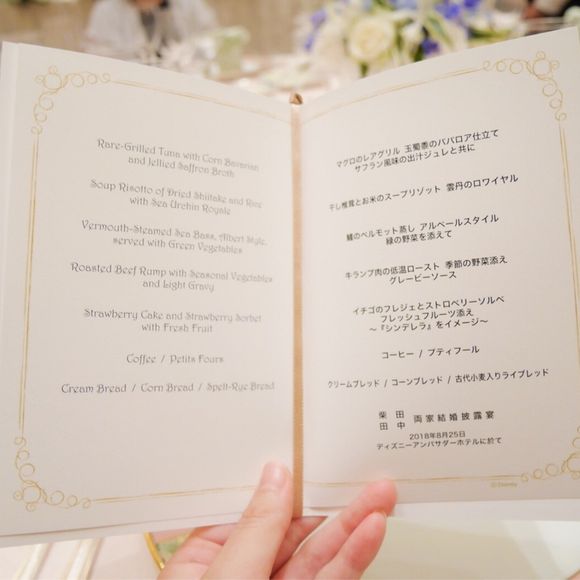 Rare-Grilled Tuna with Corn Bavarian
and Jellied Saffron Broth
Soup Risotto of Dried Shiitake and Rice
with Sea Urchin Royale
Vermouth-Steamed Sea Bass, Albert Style,
served with Green Vegetables
Roasted Beef Rump with Seasonal Vegetables
and Light Gravy
Strawberry Cake and Strawberry Sorbet
with Fresh Fruit
Coffee / Petits Fours
Cream Bread / Corn Bread / Spelt-Rye Bread
マグロのレアグリル 玉蜀黍のババロア仕立て
サフラン風味の出汁ジュレと共に
干し椎茸とお米のスープリゾット 雲丹のロワイヤル
鱸のベルモット蒸し アルベールスタイル
緑の野菜を添えて
牛ランプ肉の低温ロースト 季節の野菜添え
グレービーソース
イチゴのフレジェとストロベリーソルベ
フレッシュフルーツ添え
～『シンデレラ』をイメージ～
コーヒー / プティフール
クリームブレッド / コーンブレッド / 古代小麦入りライブレッド
柴田
田中 両家結婚披露宴
2018年8月25日
ディズニーアンバサダーホテルに於て
© Disney